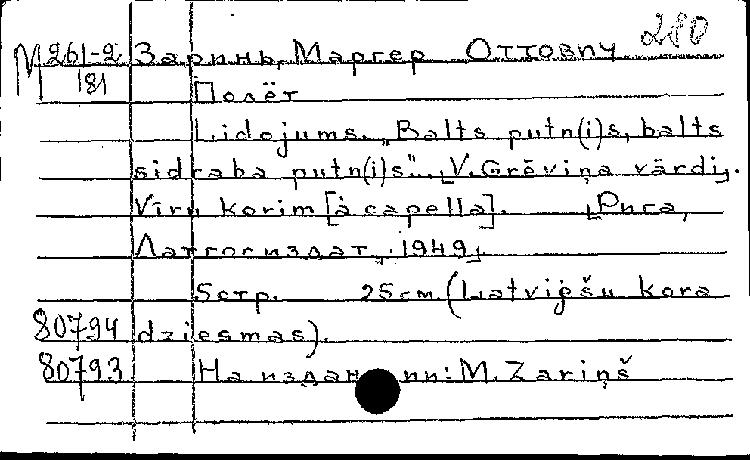 280
М 261-2 Заринь, Маргер Оттович
181 Полёт
Lidojums. „Balts putn(i)s, balts
sidraba putn(i)s". [V. Grēviņa vārdi].
Vīru korim [à capella]. [Рига,
Латгосиздат, 1949].
5 стр. 25 см. (Latviešu kora
80794 dziesmas).
80793 На издании: M. Zariņš